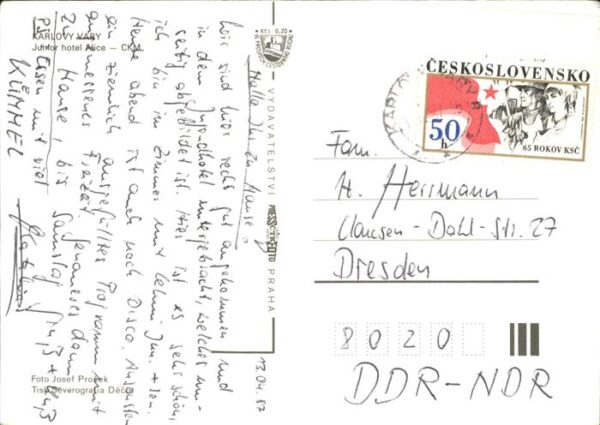 KARLOVY VARY
Junior hotel Alice — CKM
Kčs 0,20
VYDAVATELSTVÍ PRESSFOTO PRAHA
Foto Josef Prošek
Tisk Severografia Děčín
13.04.87
Hallo Ihr zu Hause!
Wir sind hier recht gut angekommen und
in dem Jugendhotel untergebracht, welches um-
seitig abgebildet ist. Hier ist es sehr schön,
ich bin im Zimmer mit
Heute abend ist auch noch Disco. Ansonsten
ein ziemlich ausgefülltes Programm mit
angemessener Freizeit. Genaueres dann
zu Hause, bis Samstag
PS: Essen mit viel
KÜMMEL
ČESKOSLOVENSKO
50 h
65 ROKOV KSČ
Fam.
H. Herrmann
Clausen-Dahl-Str. 27
Dresden
8020
DDR-NDR